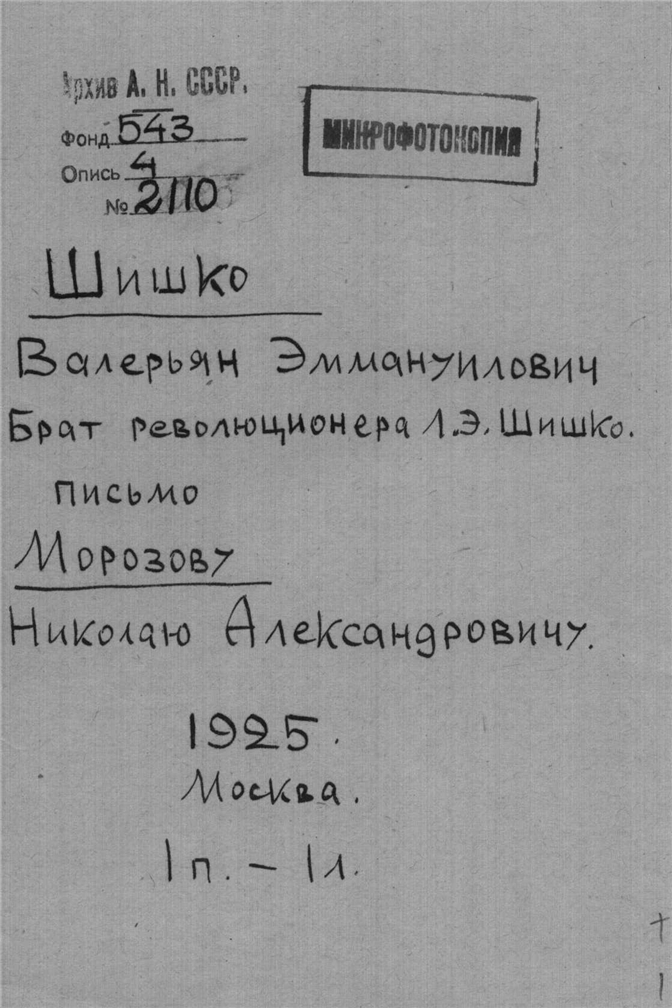 Архив А. Н. СССР.
Фонд 543
Опись 4
№ 2110
МИКРОФОТОКОПИЯ
Шишко
Валерьян Эммануилович
Брат революционера Л.Э. Шишко.
письмо
Морозову
Николаю Александровичу.
1925.
Москва.
1 п. – 1 л.